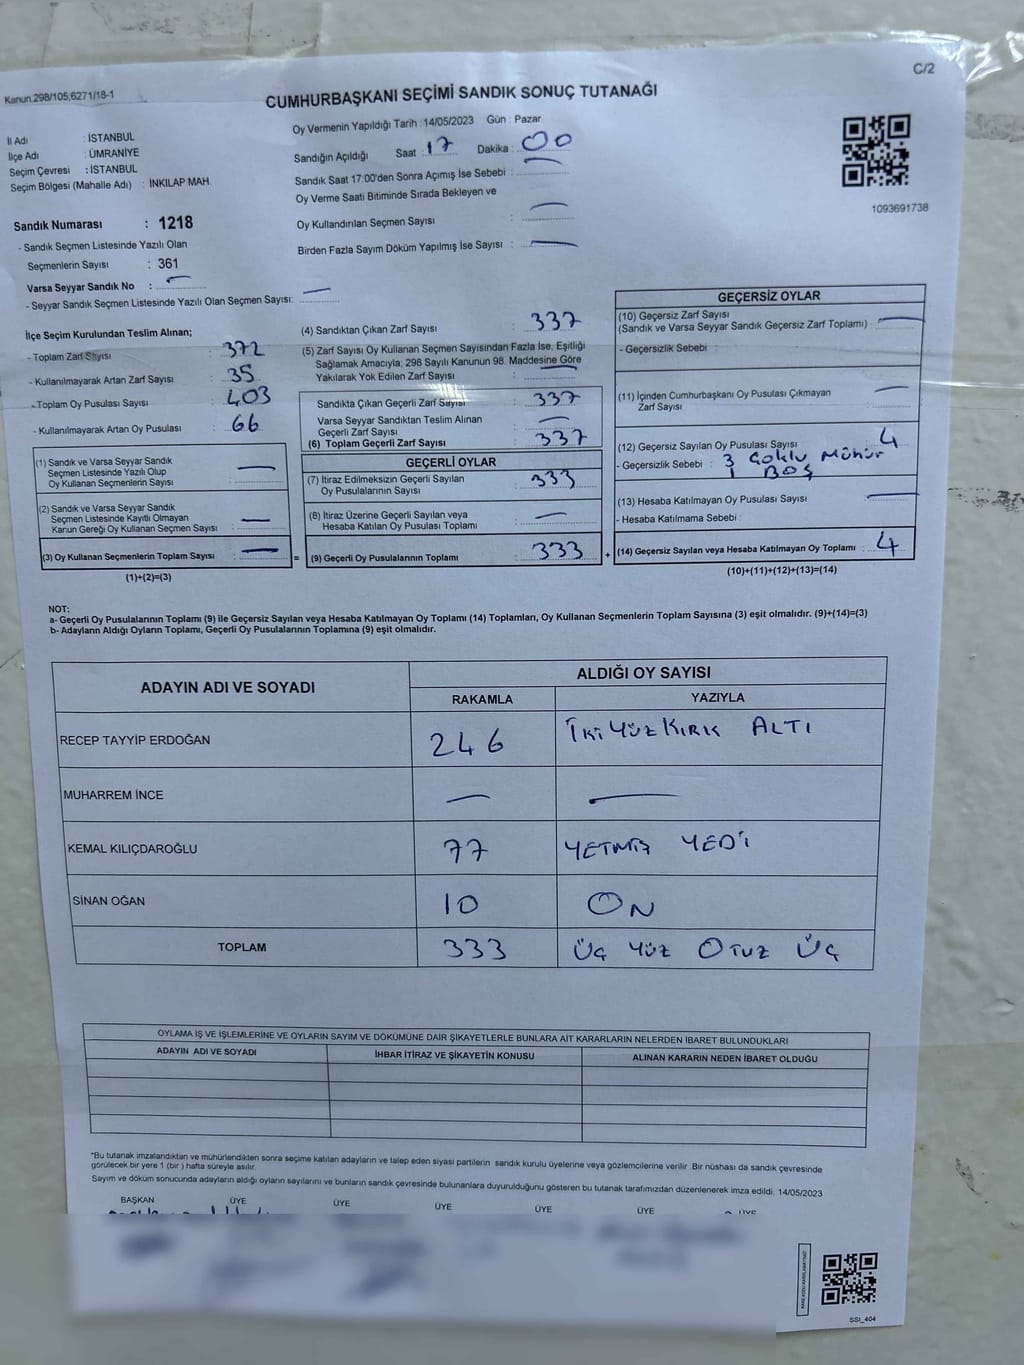 C/2
Kanun.298/105;6271/18-1
CUMHURBAŞKANI SEÇİMİ SANDIK SONUÇ TUTANAĞI
İl Adı : İSTANBUL
İlçe Adı : ÜMRANİYE
Seçim Çevresi : İSTANBUL
Seçim Bölgesi (Mahalle Adı) : İNKILAP MAH.
Oy Vermenin Yapıldığı Tarih : 14/05/2023 Gün : Pazar
Sandığın Açıldığı Saat : 17 Dakika : 00
Sandık Saat 17:00'den Sonra Açımış İse Sebebi : —
Oy Verme Saati Bitiminde Sırada Bekleyen ve
Oy Kullandırılan Seçmen Sayısı : —
Birden Fazla Sayım Döküm Yapılmış İse Sayısı : —
1093691738
Sandık Numarası : 1218
- Sandık Seçmen Listesinde Yazılı Olan
Seçmenlerin Sayısı : 361
Varsa Seyyar Sandık No : —
- Seyyar Sandık Seçmen Listesinde Yazılı Olan Seçmen Sayısı: —
İlçe Seçim Kurulundan Teslim Alınan;
- Toplam Zarf Sayısı : 372
- Kullanılmayarak Artan Zarf Sayısı : 35
- Toplam Oy Pusulası Sayısı : 403
- Kullanılmayarak Artan Oy Pusulası : 66
(1) Sandık ve Varsa Seyyar Sandık
Seçmen Listesinde Yazılı Olup
Oy Kullanan Seçmenlerin Sayısı : —
(2) Sandık ve Varsa Seyyar Sandık
Seçmen Listesinde Kayıtlı Olmayan
Kanun Gereği Oy Kullanan Seçmen Sayısı : —
(3) Oy Kullanan Seçmenlerin Toplam Sayısı : —
(1)+(2)=(3)
=
(4) Sandıktan Çıkan Zarf Sayısı : 337
(5) Zarf Sayısı Oy Kullanan Seçmen Sayısından Fazla İse, Eşitliği
Sağlamak Amacıyla; 298 Sayılı Kanunun 98. Maddesine Göre
Yakılarak Yok Edilen Zarf Sayısı : —
Sandıkta Çıkan Geçerli Zarf Sayısı : 337
Varsa Seyyar Sandıktan Teslim Alınan
Geçerli Zarf Sayısı : —
(6) Toplam Geçerli Zarf Sayısı : 337
GEÇERLİ OYLAR
(7) İtiraz Edilmeksizin Geçerli Sayılan
Oy Pusulalarının Sayısı : 333
(8) İtiraz Üzerine Geçerli Sayılan veya
Hesaba Katılan Oy Pusulası Toplamı : —
(9) Geçerli Oy Pusulalarının Toplamı : 333
+
GEÇERSİZ OYLAR
(10) Geçersiz Zarf Sayısı
(Sandık ve Varsa Seyyar Sandık Geçersiz Zarf Toplamı) : —
- Geçersizlik Sebebi :
(11) İçinden Cumhurbaşkanı Oy Pusulası Çıkmayan
Zarf Sayısı : —
(12) Geçersiz Sayılan Oy Pusulası Sayısı : 4
- Geçersizlik Sebebi : 3 Çoklu Mühür
1 BOŞ
(13) Hesaba Katılmayan Oy Pusulası Sayısı : —
- Hesaba Katılmama Sebebi :
(14) Geçersiz Sayılan veya Hesaba Katılmayan Oy Toplamı : 4
(10)+(11)+(12)+(13)=(14)
NOT:
a- Geçerli Oy Pusulalarının Toplamı (9) ile Geçersiz Sayılan veya Hesaba Katılmayan Oy Toplamı (14) Toplamları, Oy Kullanan Seçmenlerin Toplam Sayısına (3) eşit olmalıdır. (9)+(14)=(3)
b- Adayların Aldığı Oyların Toplamı, Geçerli Oy Pusulalarının Toplamına (9) eşit olmalıdır.
ADAYIN ADI VE SOYADI ALDIĞI OY SAYISI
RAKAMLA YAZIYLA
RECEP TAYYİP ERDOĞAN 246 İKİ YÜZ KIRK ALTI
MUHARREM İNCE — —
KEMAL KILIÇDAROĞLU 77 YETMİŞ YEDİ
SİNAN OĞAN 10 ON
TOPLAM 333 ÜÇ YÜZ OTUZ ÜÇ
OYLAMA İŞ VE İŞLEMLERİNE VE OYLARIN SAYIM VE DÖKÜMÜNE DAİR ŞİKAYETLERLE BUNLARA AİT KARARLARIN NELERDEN İBARET BULUNDUKLARI
ADAYIN ADI VE SOYADI İHBAR İTİRAZ VE ŞİKAYETİN KONUSU ALINAN KARARIN NEDEN İBARET OLDUĞU
*Bu tutanak imzalandıktan ve mühürlendikten sonra seçime katılan adayların ve talep eden siyasi partilerin sandık kurulu üyelerine veya gözlemcilerine verilir. Bir nüshası da sandık çevresinde
görülecek bir yere 1 (bir) hafta süreyle asılır.
Sayım ve döküm sonucunda adayların aldığı oyların sayılarını ve bunların sandık çevresinde bulunanlara duyurulduğunu gösteren bu tutanak tarafımızdan düzenlenerek imza edildi. 14/05/2023
BAŞKAN ÜYE ÜYE ÜYE ÜYE ÜYE ÜYE
SSI_404